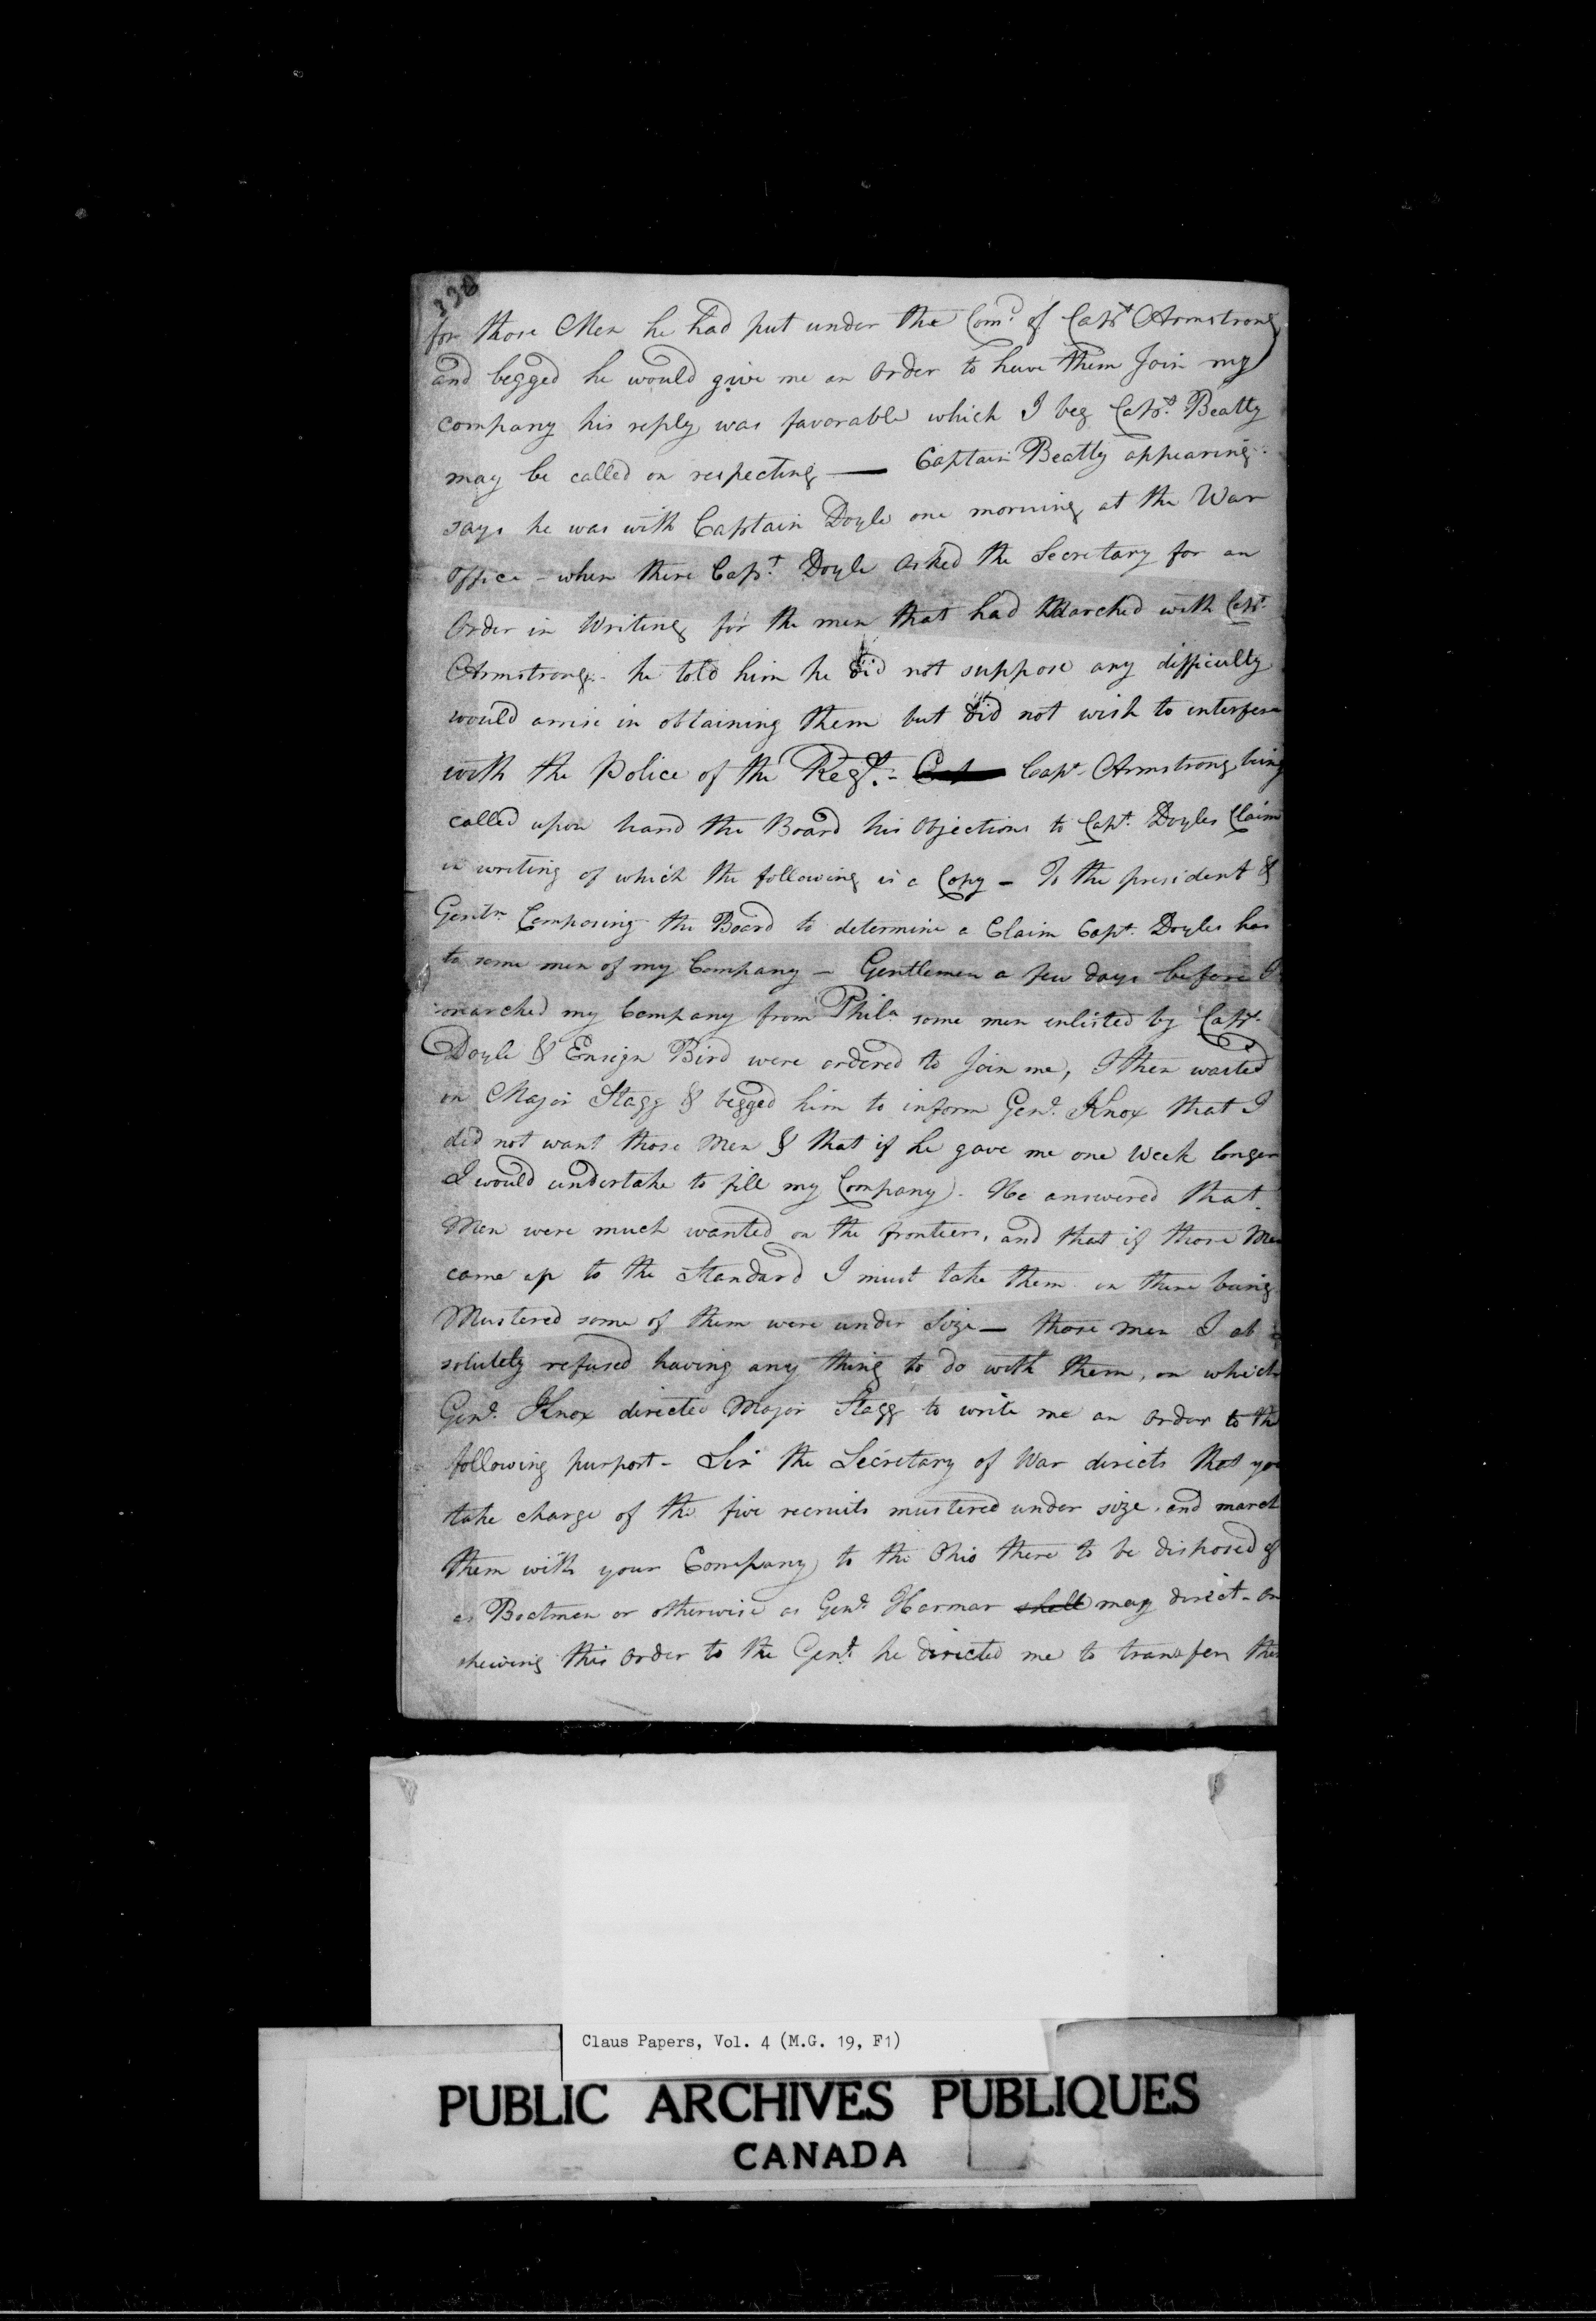 338
for those Men he had put under the Com.d of Capt Armstrong
and begged he would give me an Order to have them Join my
company his reply was favorable which I beg Capt. Beatty
may be called on respecting — Captain Beatty appearing
says he was with Captain Doyle one morning at the War
Office - when there Capt. Doyle asked the Secretary for an
Order in Writing for the men that had Marched with Capt.
Armstrong - he told him he did not suppose any difficulty
would arrise in obtaining them but did not wish to interfere
with the Police of the Regt. - Cap Capt. Armstrong being
called upon hand the Board his Objections to Capt. Doyles Claim
in writing of which the following is a Copy - To the president &
Gentn. Composing the Board to determine a Claim Capt. Doyles has
to some men of my Company - Gentlemen a few days before I
marched my Company from Phila some men enlisted by Capt.
Doyle & Ensign Bird were ordered to Join me, I then waited
on Major Stagg & begged him to inform Genl. Knox that I
did not want those Men & that if he gave me one Week longer
I would undertake to fill my Company - He answered that
Men were much wanted on the frontiers, and that if those Men
came up to the Standard I must take them on there being
Mustered some of them were under Size — those men I ab
solutely refused having any thing to do with them, on which
Genl. Knox directed Major Stagg to write me an order to the
following purport - Sir the Secretary of War directs that you
take charge of the five recruits mustered under size, and march
them with your Company to the Ohio there to be disposed of
as Boatmen or otherwise as Genl. Harmar shall may direct - on
shewing this order to the Genl. he directed me to transfer them
Claus Papers, Vol. 4 (M.G. 19, F1)
PUBLIC ARCHIVES PUBLIQUES
CANADA